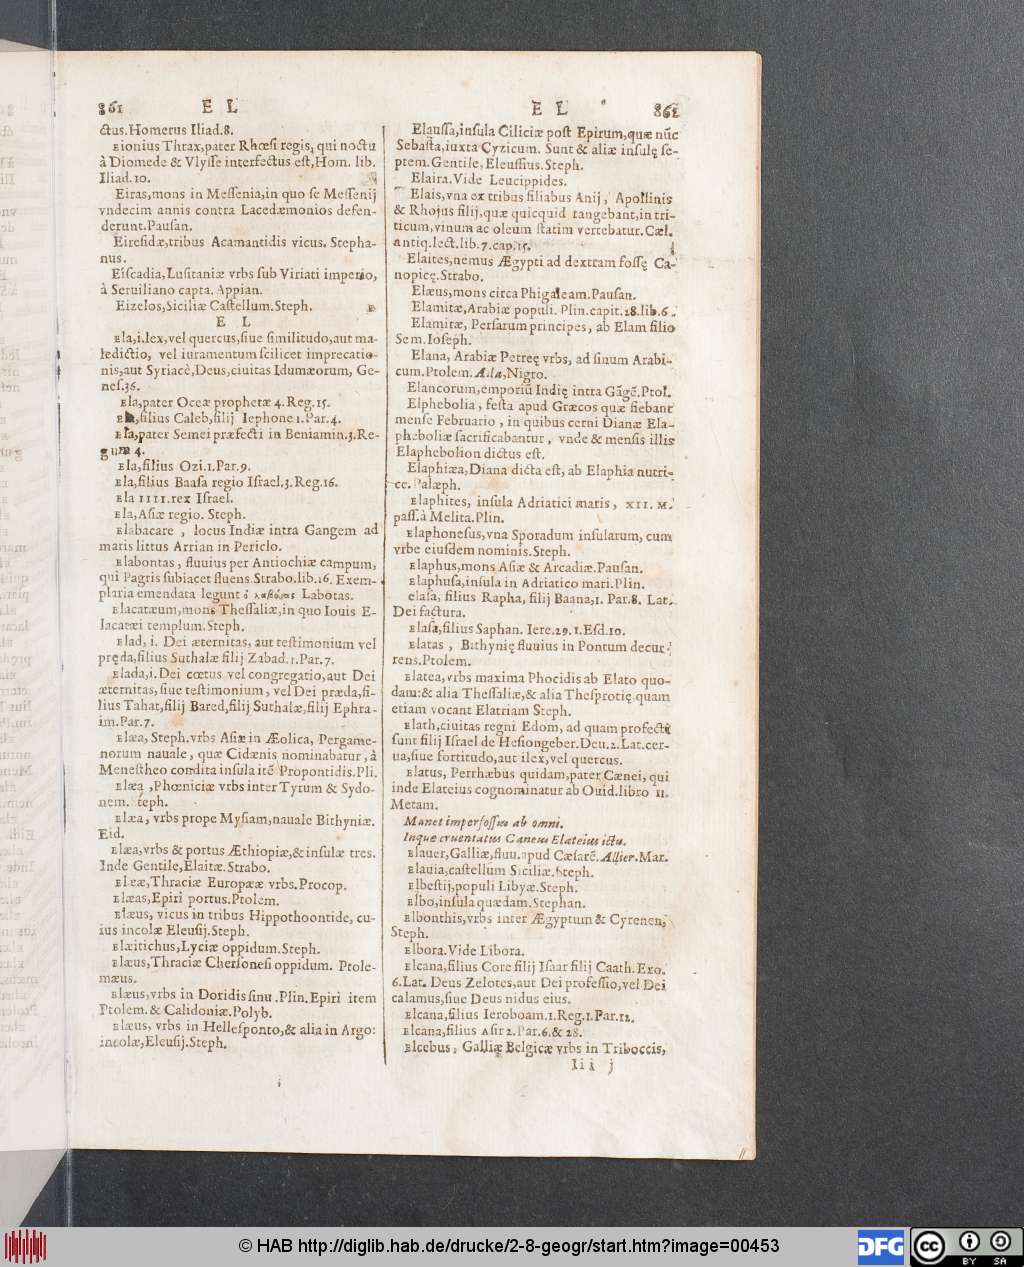 861 E L
ctus.Homerus Iliad.8.
Eionius Thrax,pater Rhœsi regis, qui noctu
à Diomede & Vlysse interfectus est,Hom. lib.
Iliad.10.
Eiras,mons in Messenia,in quo se Messenij
vndecim annis contra Lacedæmonios defen-
derunt.Pausan.
Eiresidæ,tribus Acamantidis vicus. Stepha-
nus.
Eiscadia,Lusitaniæ vrbs sub Viriati imperio,
à Seruiliano capta. Appian.
Eizelos,Siciliæ Castellum.Steph.
E L
Ela,i.lex,vel quercus,siue similitudo,aut ma-
ledictio, vel iuramentum scilicet imprecatio-
nis,aut Syriacè,Deus,ciuitas Idumæorum, Ge-
nes.36.
Ela,pater Oceæ prophetæ 4.Reg.15.
Ela,filius Caleb,filij Iephone 1.Par.4.
Ela,pater Semei præfecti in Beniamin.3.Re-
gum 4.
Ela,filius Ozi.1.Par.9.
Ela,filius Baasa regio Israel.3.Reg.16.
Ela IIII.rex Israel.
Ela,Asiæ regio. Steph.
Elabacare , locus Indiæ intra Gangem ad
maris littus Arrian in Periclo.
Elabontas , fluuius per Antiochiæ campum,
qui Pagris subiacet fluens.Strabo.lib.16. Exem-
plaria emendata legunt ὁ λαβότας Labotas.
Elacatæum,mons Thessaliæ,in quo Iouis E-
lacatæi templum.Steph.
Elad, i. Dei æternitas, aut testimonium vel
pręda,filius Suthalæ filij Zabad.1.Par.7.
Elada,i.Dei cœtus vel congregatio,aut Dei
æternitas,siue testimonium, vel Dei præda,fi-
lius Tahat,filij Bared,filij Suthalæ,filij Ephra-
im.Par.7.
Elæa, Steph.vrbs Asiæ in Æolica, Pergame-
norum nauale, quæ Cidænis nominabatur, à
Menestheo condita insula itẽ Propontidis.Pli.
Elæa ,Phœniciæ vrbs inter Tyrum & Sydo-
nem. teph.
Elæa, vrbs prope Mysiam,nauale Bithyniæ.
Eid.
Elæa,vrbs & portus Æthiopiæ,& insulæ tres.
Inde Gentile,Elaitæ.Strabo.
Eleæ,Thraciæ Europææ vrbs.Procop.
Elæas,Epiri portus.Ptolem.
Elæus, vicus in tribus Hippothoontide, cu-
ius incolæ Eleusij.Steph.
Elæitichus,Lyciæ oppidum.Steph.
Elæus,Thraciæ Chersonesi oppidum. Ptole-
mæus.
Elæus,vrbs in Doridis sinu .Plin.Epiri item
Ptolem.& Calidoniæ.Polyb.
Elæus, vrbs in Hellesponto,& alia in Argo:
incolæ,Eleusij.Steph.
E L 862
Elaussa,insula Ciliciæ post Epirum,quæ nũc
Sebasta,iuxta Cyzicum. Sunt & aliæ insulę se-
ptem.Gentile, Eleussius.Steph.
Elaira.Vide Leucippides.
Elais,vna ex tribus filiabus Anij, Apollinis
& Rhojus filij,quæ quicquid tangebant,in tri-
ticum,vinum ac oleum statim vertebatur. Cæl.
antiq.lect.lib.7.cap.15.
Elaites,nemus Ægypti ad dextram fossę Ca-
nopicę.Strabo.
Elæus,mons circa Phigaleam.Pausan.
Elamitæ,Arabiæ populi. Plin.capit.28.lib.6.
Elamitæ, Persarum principes, ab Elam filio
Sem.Ioseph.
Elana, Arabiæ Petreę vrbs, ad sinum Arabi-
cum.Ptolem.Aila,Nigro.
Elancorum,emporiũ Indię intra Gãgẽ.Ptol.
Elphebolia, festa apud Græcos quæ fiebant
mense Februario , in quibus cerui Dianæ Ela-
pheboliæ sacrificabantur, vnde & mensis illis
Elaphebolion dictus est.
Elaphiæa,Diana dicta est, ab Elaphia nutri-
ce. Palæph.
Elaphites, insula Adriatici maris, XII. M.
pass.à Melita.Plin.
Elaphonesus,vna Sporadum insularum, cum
vrbe eiusdem nominis.Steph.
Elaphus,mons Asiæ & Arcadiæ.Pausan.
Elaphusa,insula in Adriatico mari.Plin.
elasa, filius Rapha, filij Baana,1. Par.8. Lat.
Dei factura.
Elasa,filius Saphan. Iere.29.1.Esd.10.
Elatas , Bithynię fluuius in Pontum decur-
rens.Ptolem.
Elatea,vrbs maxima Phocidis ab Elato quo-
dam:& alia Thessaliæ,& alia Thesprotię.quam
etiam vocant Elatriam Steph.
Elath,ciuitas regni Edom, ad quam profecti
sunt filij Israel de Hesiongeber.Deu.2.Lat.cer-
ua,siue fortitudo,aut ilex,vel quercus.
Elatus, Perrhæbus quidam,pater Cænei, qui
inde Elateius cognominatur ab Ouid.libro 11.
Metam.
Manet imperfossus ab omni.
Inque cruentatus Caneus Elateius ictu.
Elauer,Galliæ,fluu.apud Cæsarẽ.Allier.Mar.
Elauia,castellum Siciliæ.Steph.
Elbestij,populi Libyæ.Steph.
Elbo,insula quædam.Stephan.
Elbonthis,vrbs inter Ægyptum & Cyrenen,
Steph.
Elbora.Vide Libora.
Elcana,filius Core filij Isaar filij Caath.Exo.
6.Lat. Deus Zelotes,aut Dei professio,vel Dei
calamus,siue Deus nidus eius.
Elcana,filius Ieroboam.1.Reg.1.Par.12.
Elcana,filius Asir 2.Par.6.& 28.
Elcebus, Gallię Belgicæ vrbs in Triboccis,
Iii j
© HAB http://diglib.hab.de/drucke/2-8-geogr/start.htm?image=00453
DFG
cc BY SA